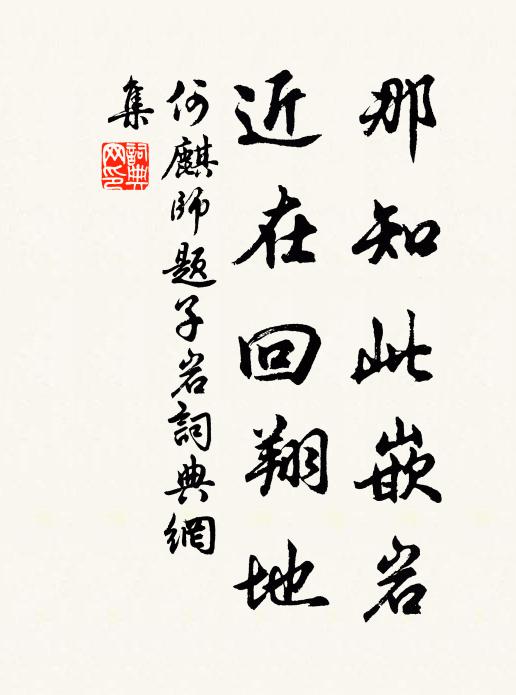 那知此嵌岩
近在回翔地
何麒師題子岩詞典網
集
詞典
网印